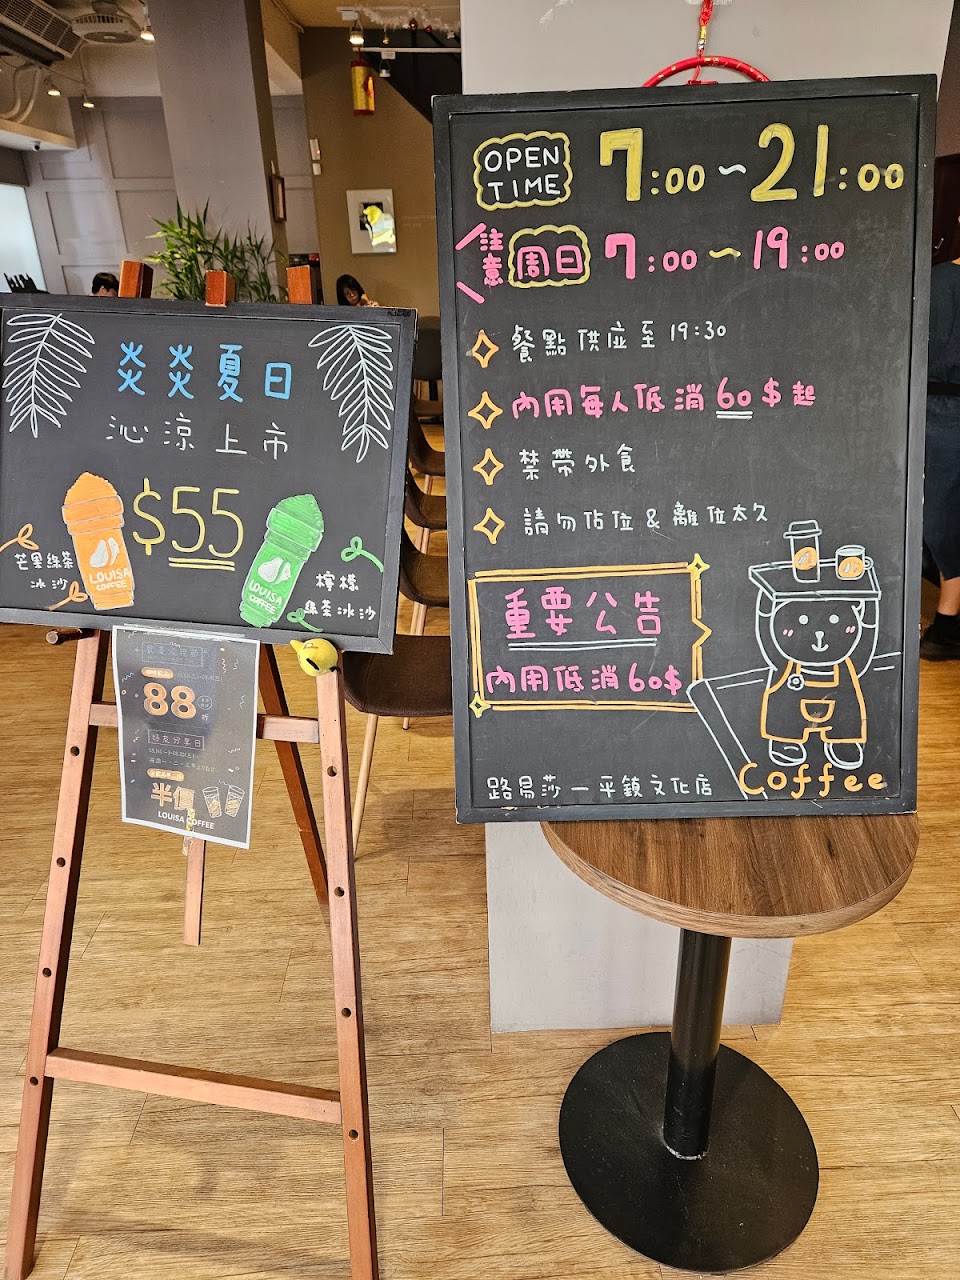 炎炎夏日
沁涼上市
$55
芒果綠茶
冰沙
LOUISA
COFFEE
檸檬
綠茶冰沙
LOUISA
COFFEE
88
折
好友分享日
半價
LOUISA COFFEE
OPEN
TIME
7:00~21:00
注意
周日
7:00~19:00
餐點供應至 19:30
內用每人低消60$起
禁帶外食
請勿佔位 & 離位太久
重要公告
內用低消60$
路易莎—平鎮文化店
Coffee